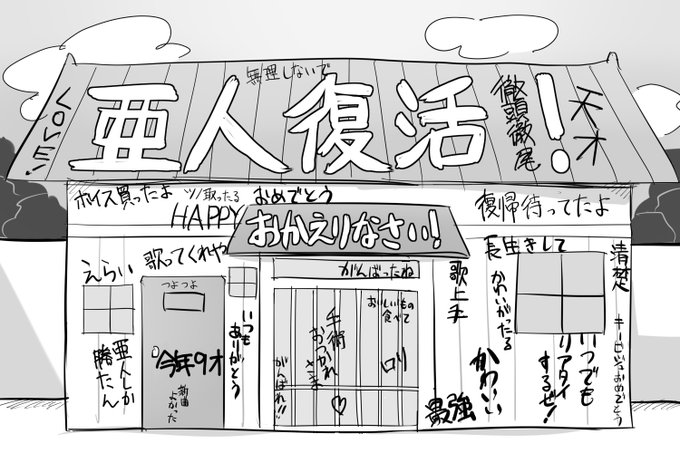 無理しないで
LOVE!
亜人復活!
徹頭徹尾
天才
ボイス買ったよ
ツノ取ったる
おめでとう
HAPPY
復帰待ってたよ
おかえりなさい!
えらい
歌ってくれや
つよつよ
今年9才
新曲
よかった
亜人しか
勝たん
いつも
ありがとう
がんばったね
おいしいもの
食べて
手術
おつかれ
さま
♡
がんばれ!!
ロリ
歌上手
長生きして
かわいがったる
かわいい
最強
いつでも
リアタイ
するぜ!
清楚
おめでとう